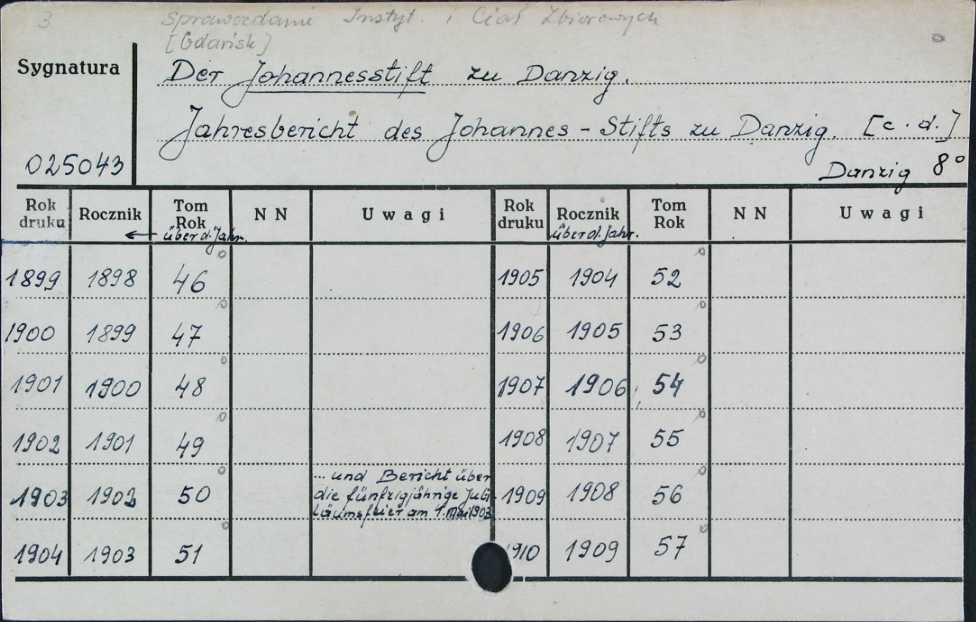 3 Sprawozdanie Instyt. i Ciał Zbiorowych
[Gdańsk]
Sygnatura
Der Johannesstift zu Danzig.
Jahresbericht des Johannes-Stifts zu Danzig. [c.d.]
025043
Danzig 8°
Rok druku Rocznik Tom Rok NN Uwagi Rok druku Rocznik Tom Rok NN Uwagi
← über d. Jahr. über d. Jahr.
1899 1898 46 1905 1904 52
1900 1899 47 1906 1905 53
1901 1900 48 1907 1906 54
1902 1901 49 1908 1907 55
1903 1902 50 ... und Bericht über die fünfzigjährige Jubiläumsfeier am 1. Mai 1903 1909 1908 56
1904 1903 51 1910 1909 57